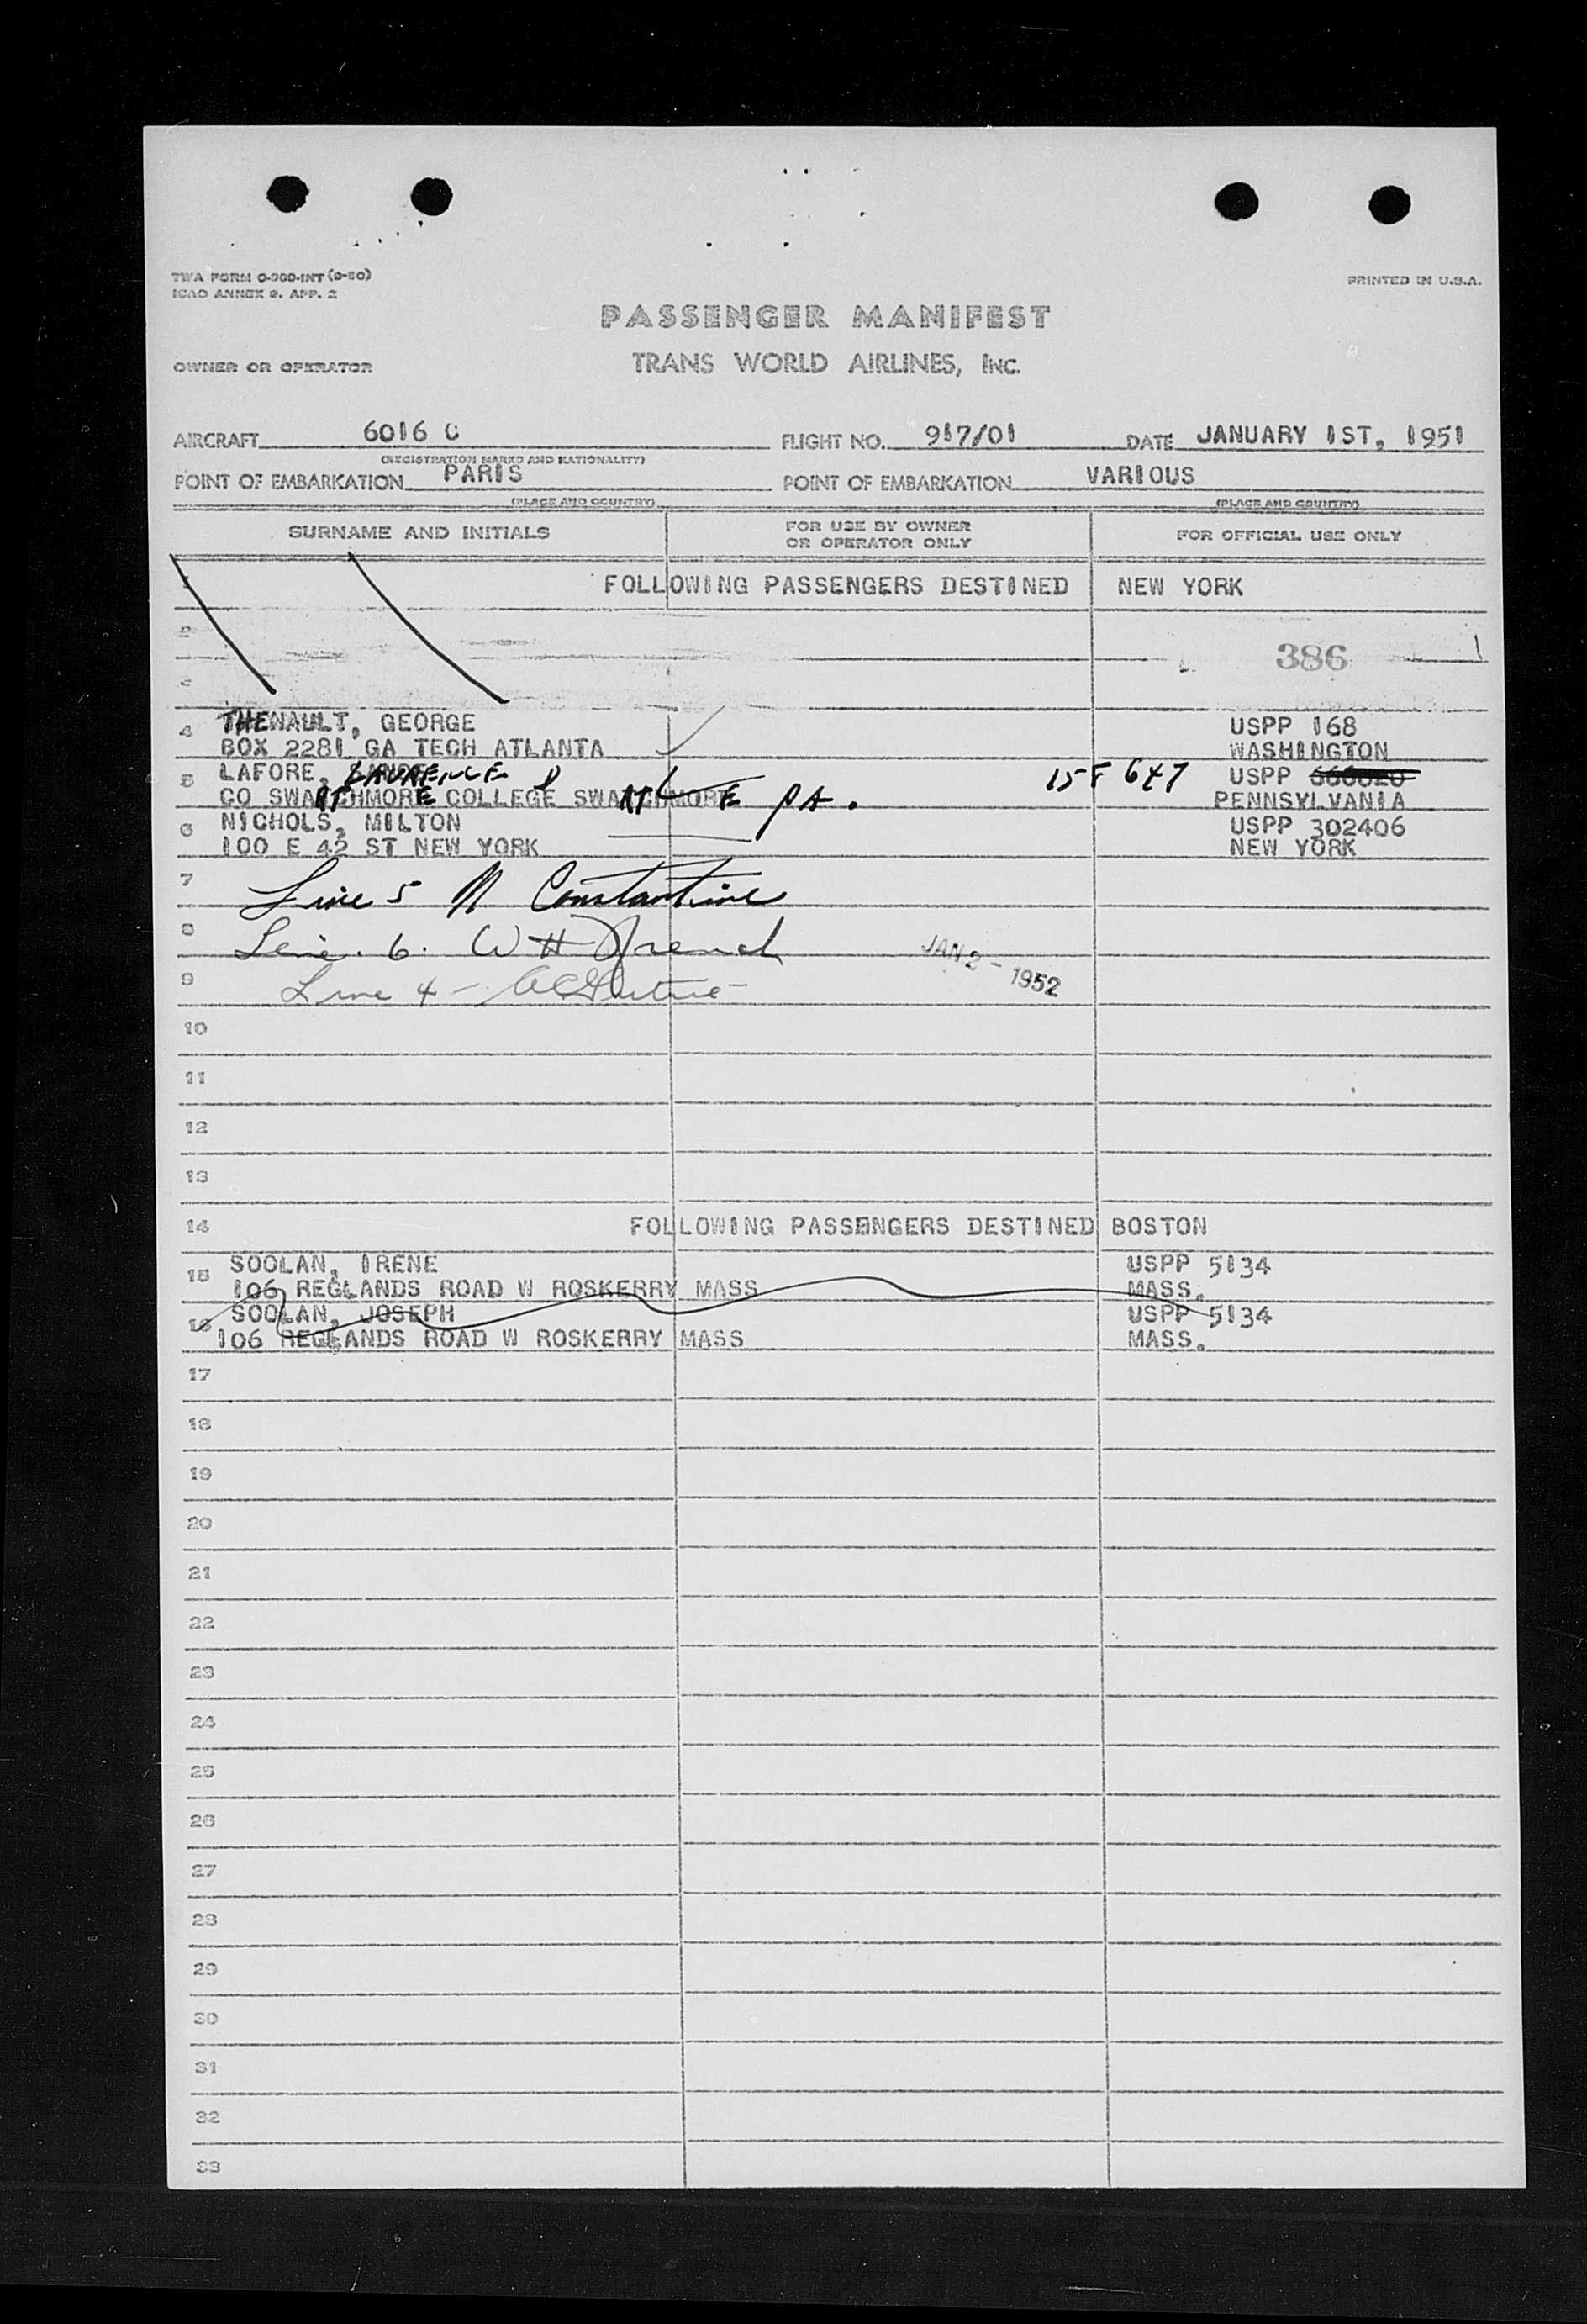 TWA FORM O-900-INT (9-50)
ICAO ANNEX 9. APP. 2
PRINTED IN U.S.A.
PASSENGER MANIFEST
OWNER OR OPERATOR
TRANS WORLD AIRLINES, INC.
AIRCRAFT 6016 C FLIGHT NO. 917/01 DATE JANUARY 1ST, 1951
(REGISTRATION MARKS AND NATIONALITY)
POINT OF EMBARKATION PARIS POINT OF EMBARKATION VARIOUS
(PLACE AND COUNTRY) (PLACE AND COUNTRY)
SURNAME AND INITIALS FOR USE BY OWNER OR OPERATOR ONLY FOR OFFICIAL USE ONLY
1 FOLLOWING PASSENGERS DESTINED NEW YORK
2
386
4 THENAULT, GEORGE USPP 168
BOX 2281 GA TECH ATLANTA WASHINGTON
5 LAFORE, LAURENCE D 158 647 USPP
CO SWARTHMORE COLLEGE SWARTHMORE PA. PENNSYLVANIA
6 NICHOLS, MILTON USPP 302406
100 E 42 ST NEW YORK NEW YORK
7 Line 5 N Constantine
8 Line. 6. W H French
JAN 2 - 1952
9 Line 4 -
10
11
12
13
14 FOLLOWING PASSENGERS DESTINED BOSTON
15 SOOLAN, IRENE USPP 5134
106 REGLANDS ROAD W ROSKERRY MASS MASS.
16 SOOLAN, JOSEPH USPP 5134
106 REGLANDS ROAD W ROSKERRY MASS MASS.
17
18
19
20
21
22
23
24
25
26
27
28
29
30
31
32
33